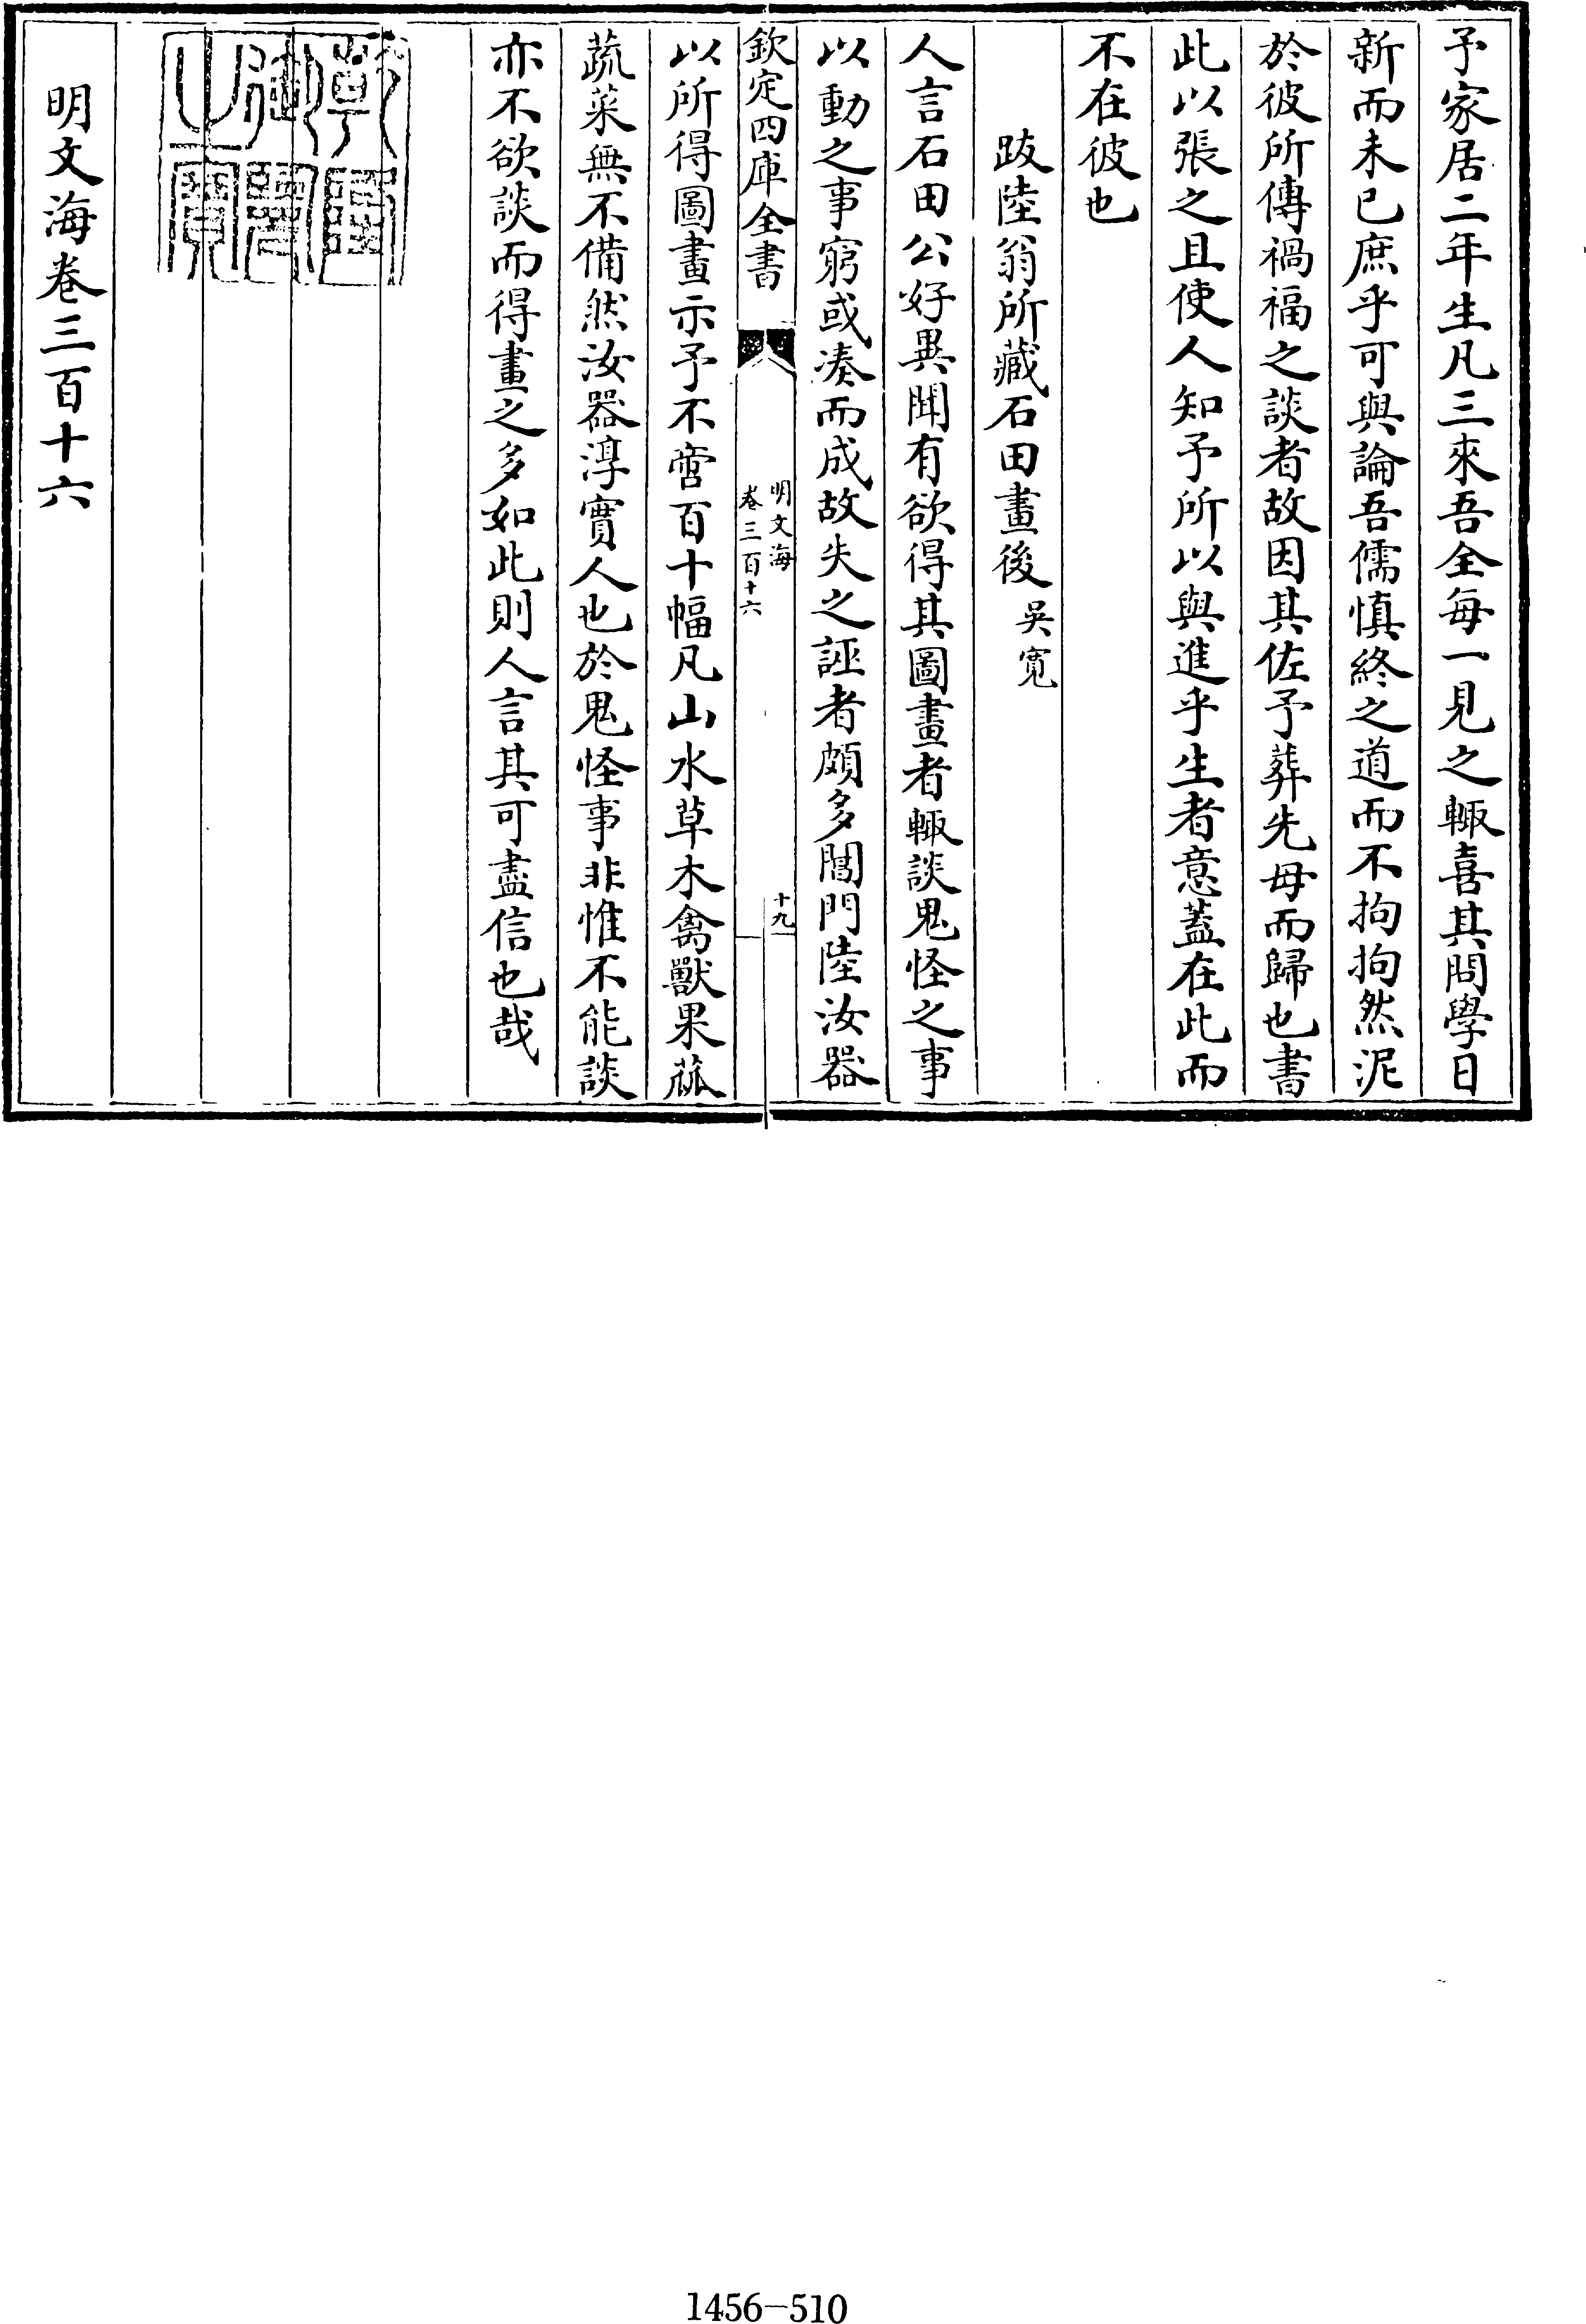 予家居二年生凡三來吾全每一見之輙喜其問學日
新而未已庶乎可與論吾儒慎終之道而不拘拘然泥
於彼所傳禍福之談者故因其佐予葬先母而歸也書
此以張之且使人知予所以與進乎生者意蓋在此而
不在彼也
跋陸翁所藏石田畫後 吳寛
人言石田公好異聞有欲得其圖畫者輙談鬼怪之事
以動之事窮或湊而成故失之誣者頗多閶門陸汝器
欽定四庫全書
明文海
卷三百十六
十九
以所得圖畫示予不啻百十幅凡山水草木禽獸果蓏
蔬菜無不備然汝器淳實人也於鬼怪事非惟不能談
亦不欲談而得畫之多如此則人言其可盡信也哉
乾隆御覽之寶
明文海卷三百十六
1456-510